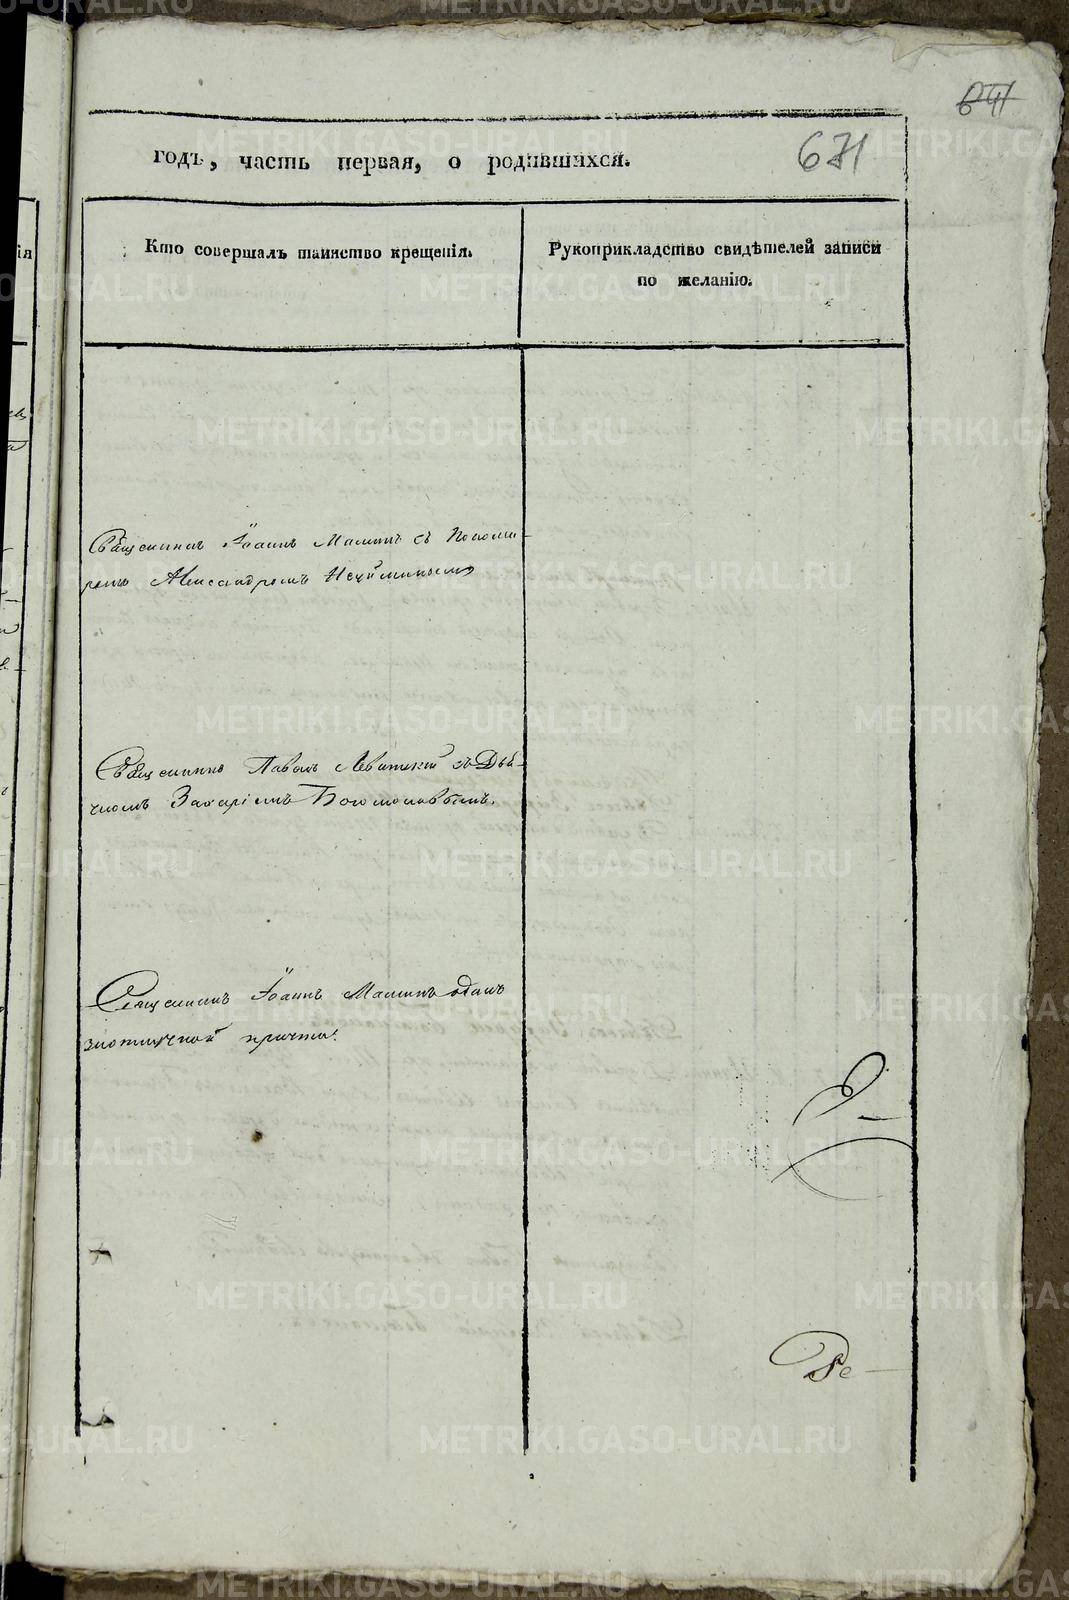 641
годъ, часть первая, о родившихся.
671
Кто совершалъ таинство крещенія.
Рукоприкладство свидѣтелей записи
по желанію.
Священникъ Іоаннъ Маминъ съ Понома-
ремъ Александромъ
Священникъ Павелъ Левитскій съ Дья-
чкомъ Захаріемъ Богомоловымъ.
Священникъ Іоаннъ Маминъ
причта.
METRIKI.GASO-URAL.RU